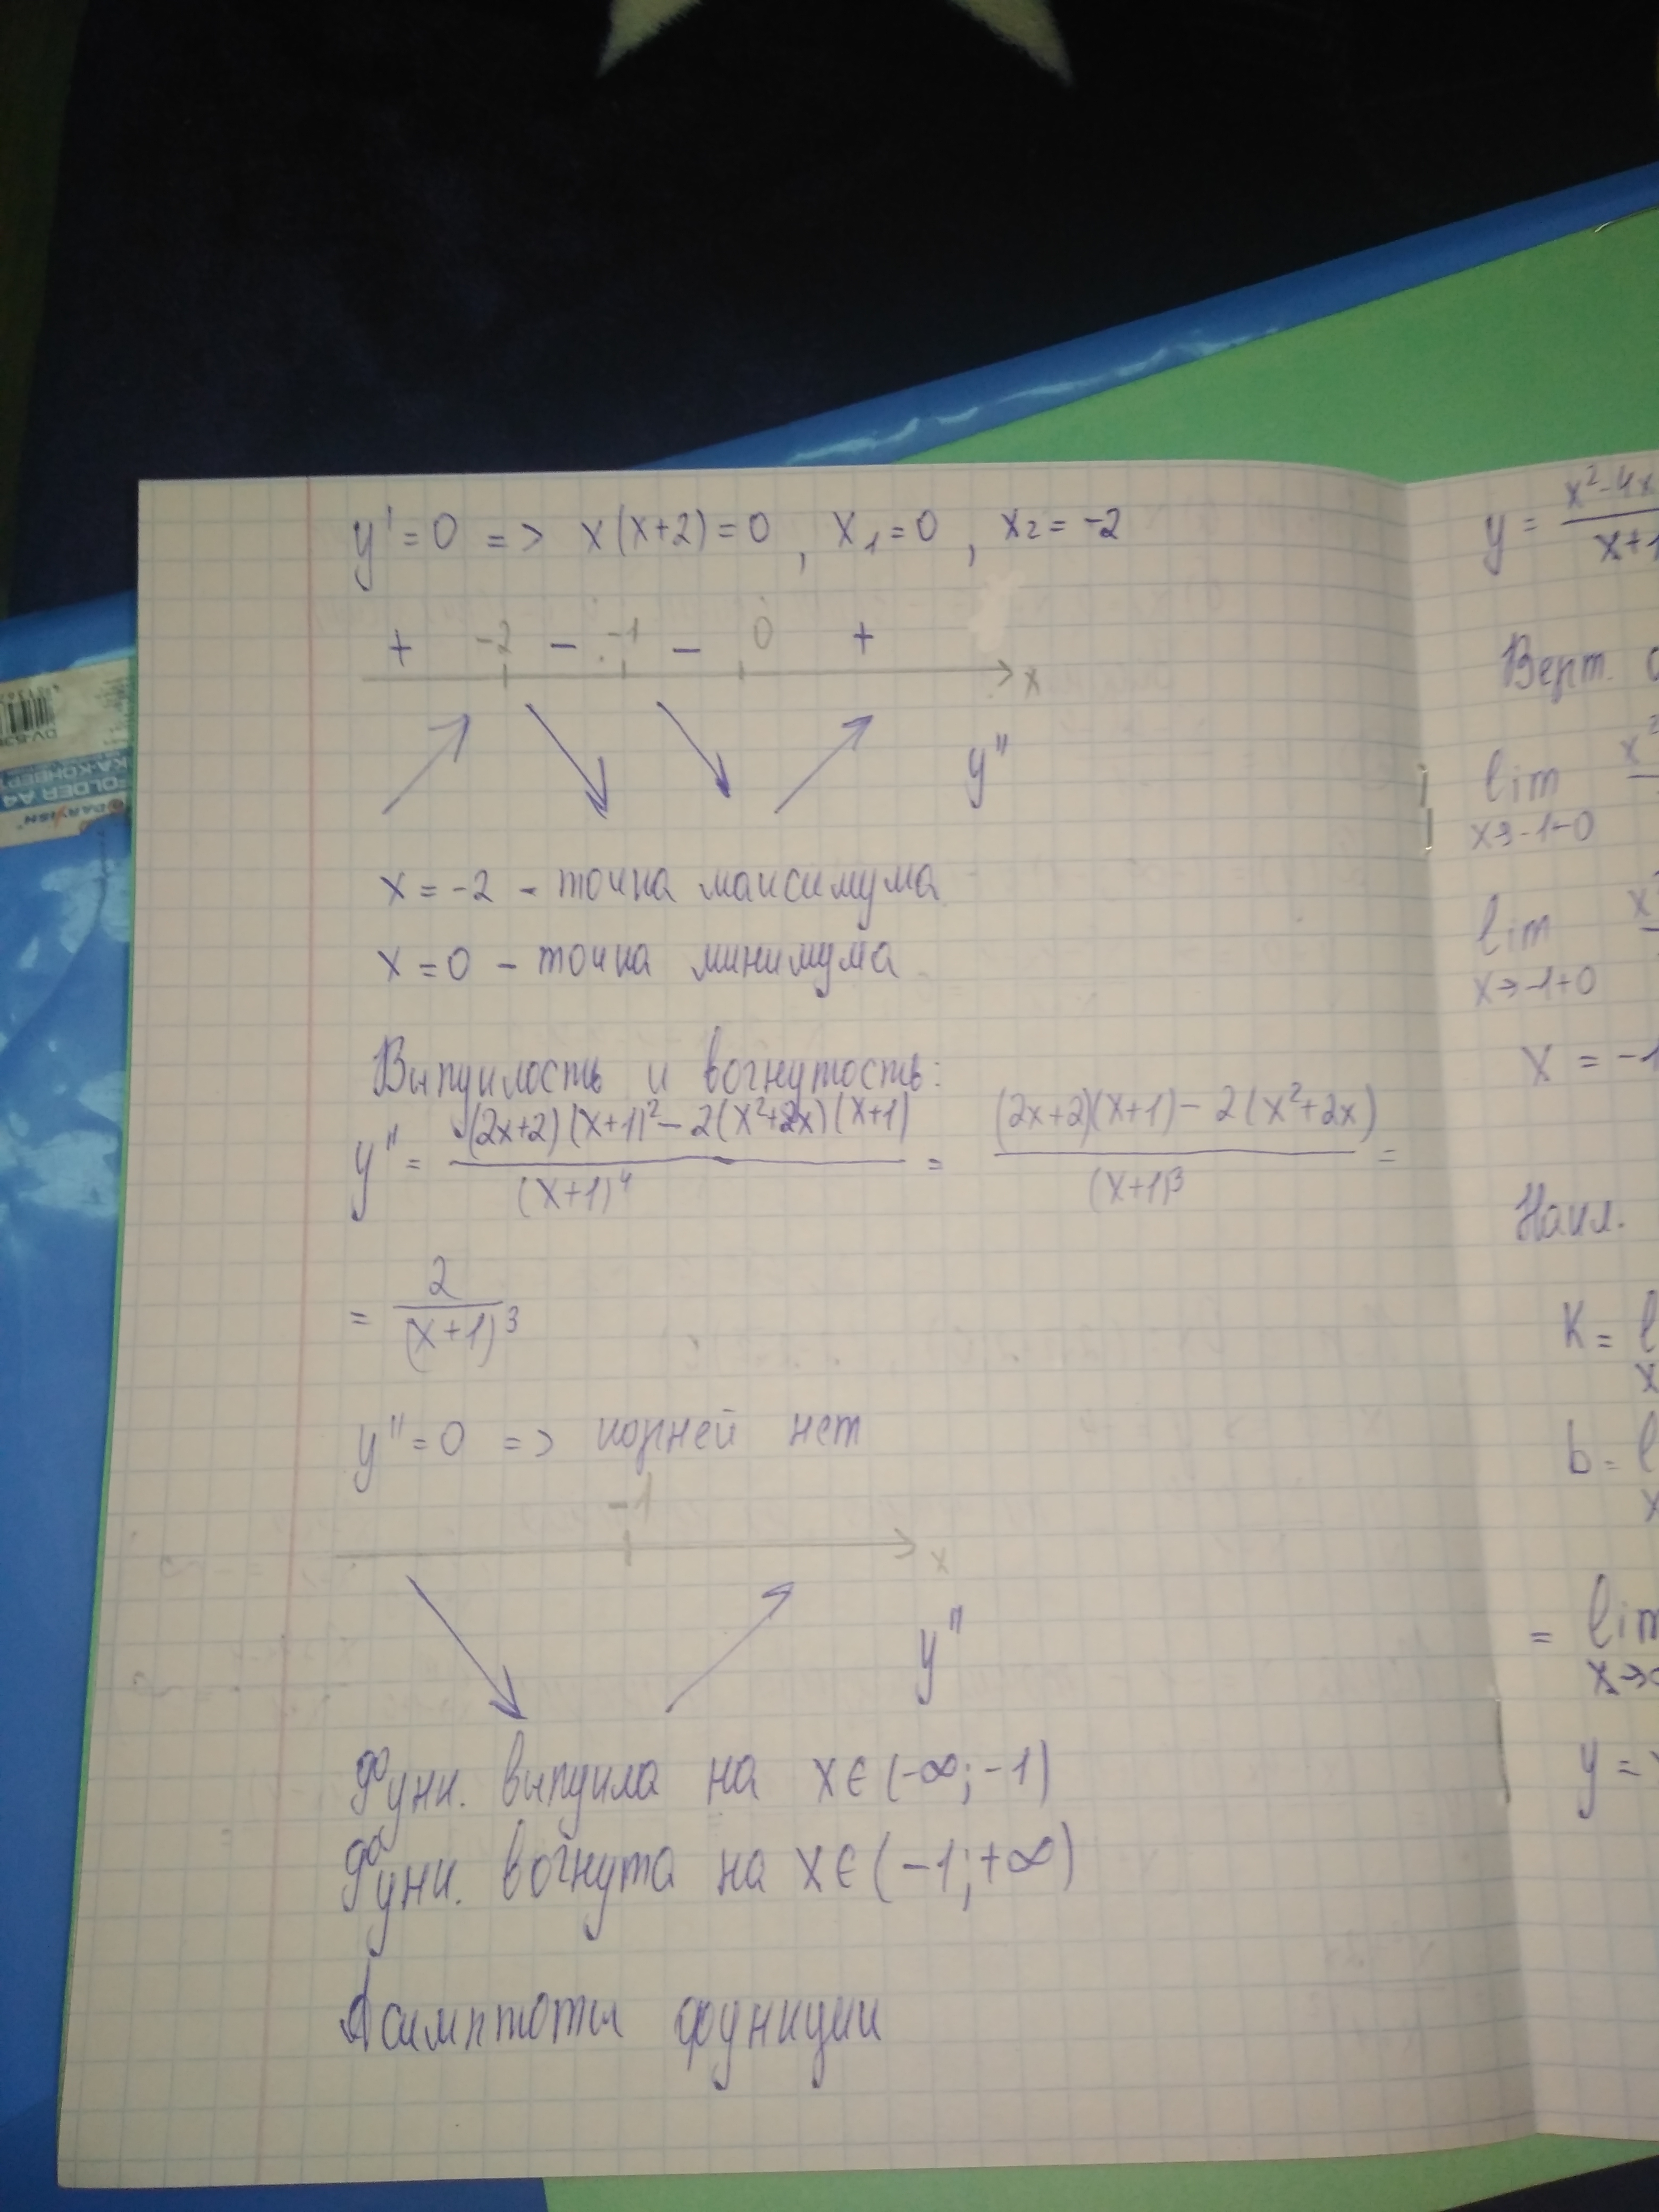 y' = 0 => x(x+2) = 0 , x₁ = 0 , x₂ = -2
+ -2 - -1 - 0 + x
y''
x = -2 - точка максимума
x = 0 - точка минимума
Выпуклость и вогнутость:
y'' = ((2x+2)(x+1)² - 2(x²+2x)(x+1))/(x+1)⁴ = ((2x+2)(x+1) - 2(x²+2x))/(x+1)³ =
= 2/(x+1)³
y'' = 0 => корней нет
-1
x
y''
Функ. выпукла на x ∈ (-∞; -1)
Функ. вогнута на x ∈ (-1; +∞)
Асимптоты функции
y = x²-4x / x+1
Верт.
lim
x→-1-0
lim
x→-1+0
x = -1
Накл.
K =
b =
= lim
y =
FOLDER A4